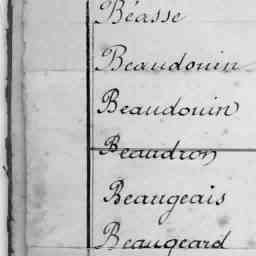 Béasse
Beaudouin
Beaudouin
Beaudron
Beaugeais
Beaugeard